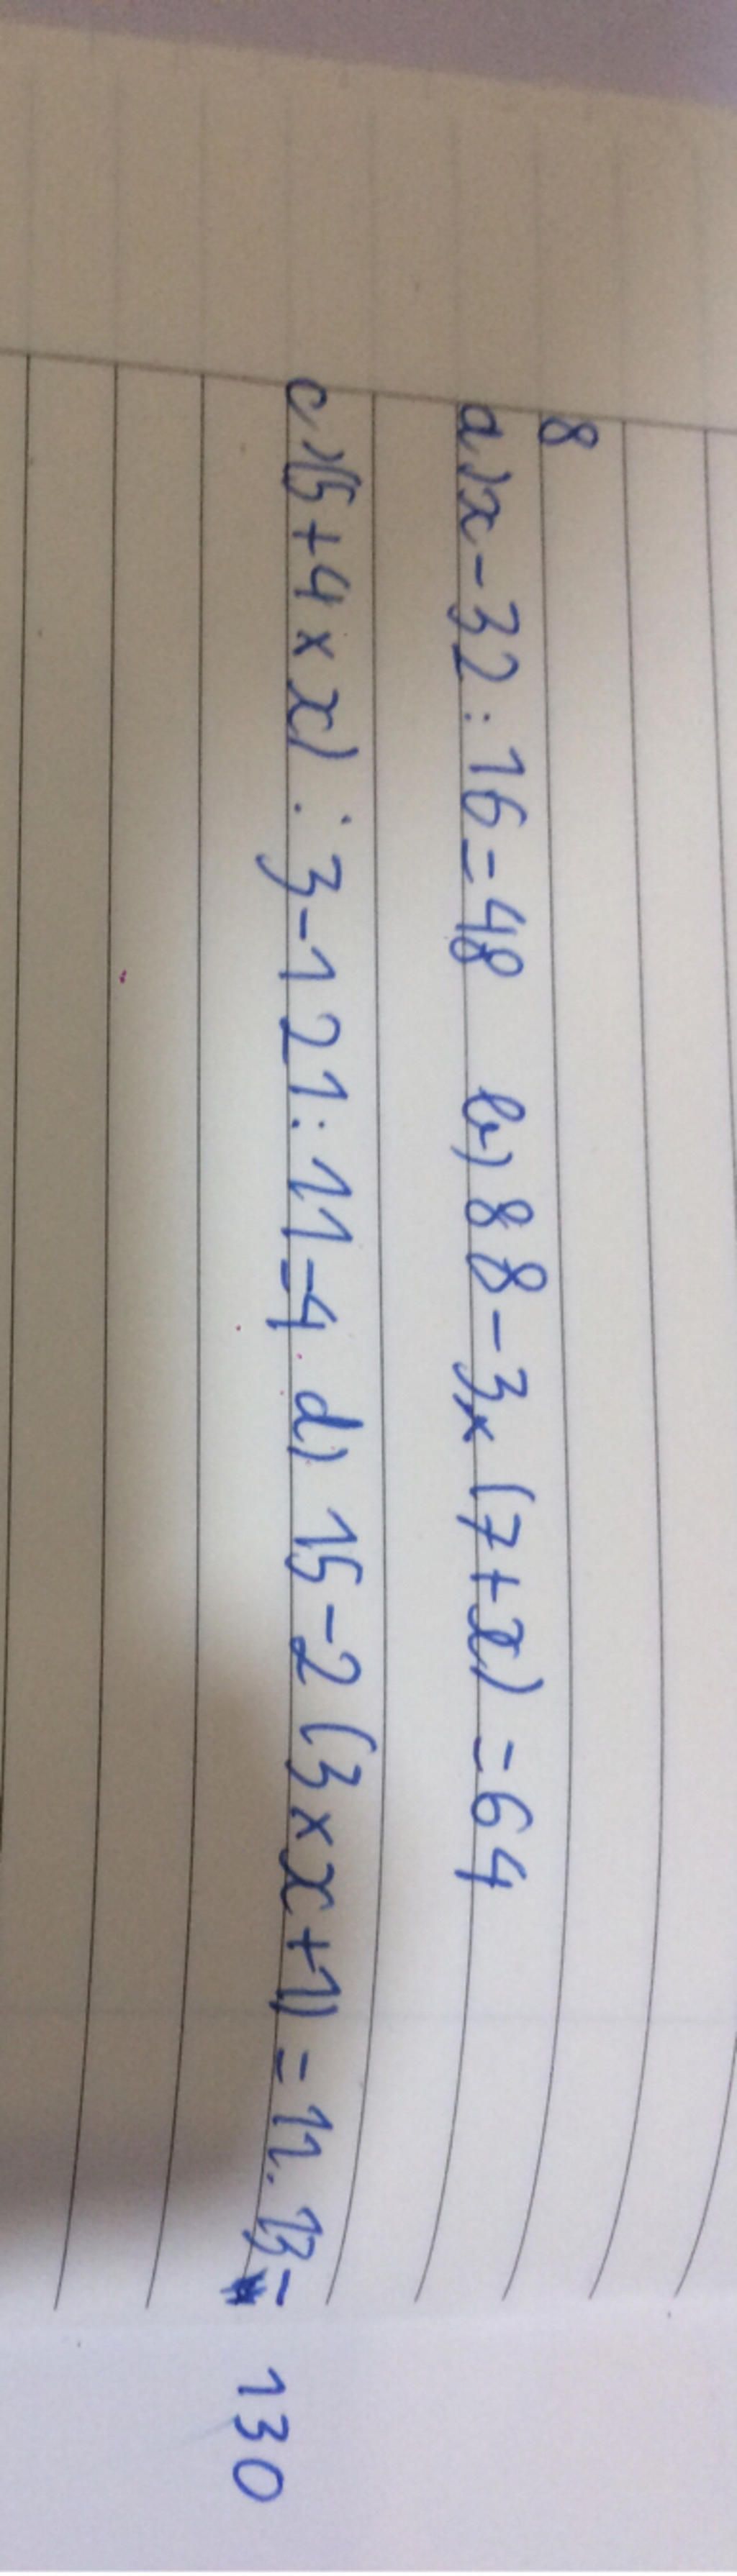 8
a) x - 32 : 16 = 48 b) 88 - 3 x (7 + x) = 64
c) (5 + 4 x x) : 3 - 121 : 11 = 4 d) 15 - 2 (3 x x + 1) = 11 . 13 - 130